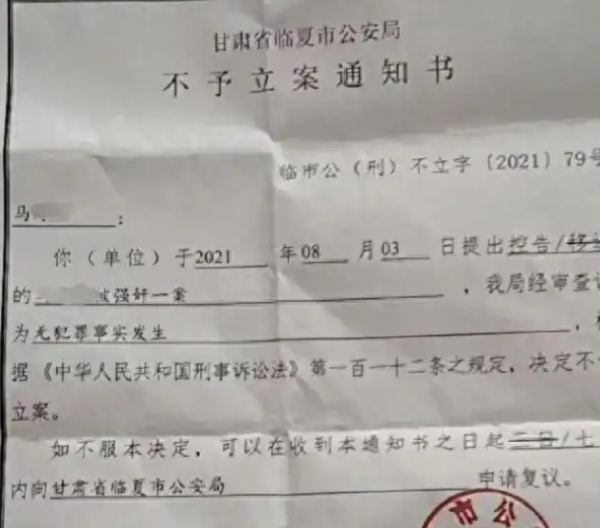 甘肃省临夏市公安局
不予立案通知书
临市公（刑）不立字〔2021〕79号
马
：
你（单位）于2021年08月03日提出控告/移
的 被强奸一案，我局经审查
为无犯罪事实发生，
据《中华人民共和国刑事诉讼法》第一百一十二条之规定，决定不
立案。
如不服本决定，可以在收到本通知书之日起三日/七
内向甘肃省临夏市公安局 申请复议。
公
市